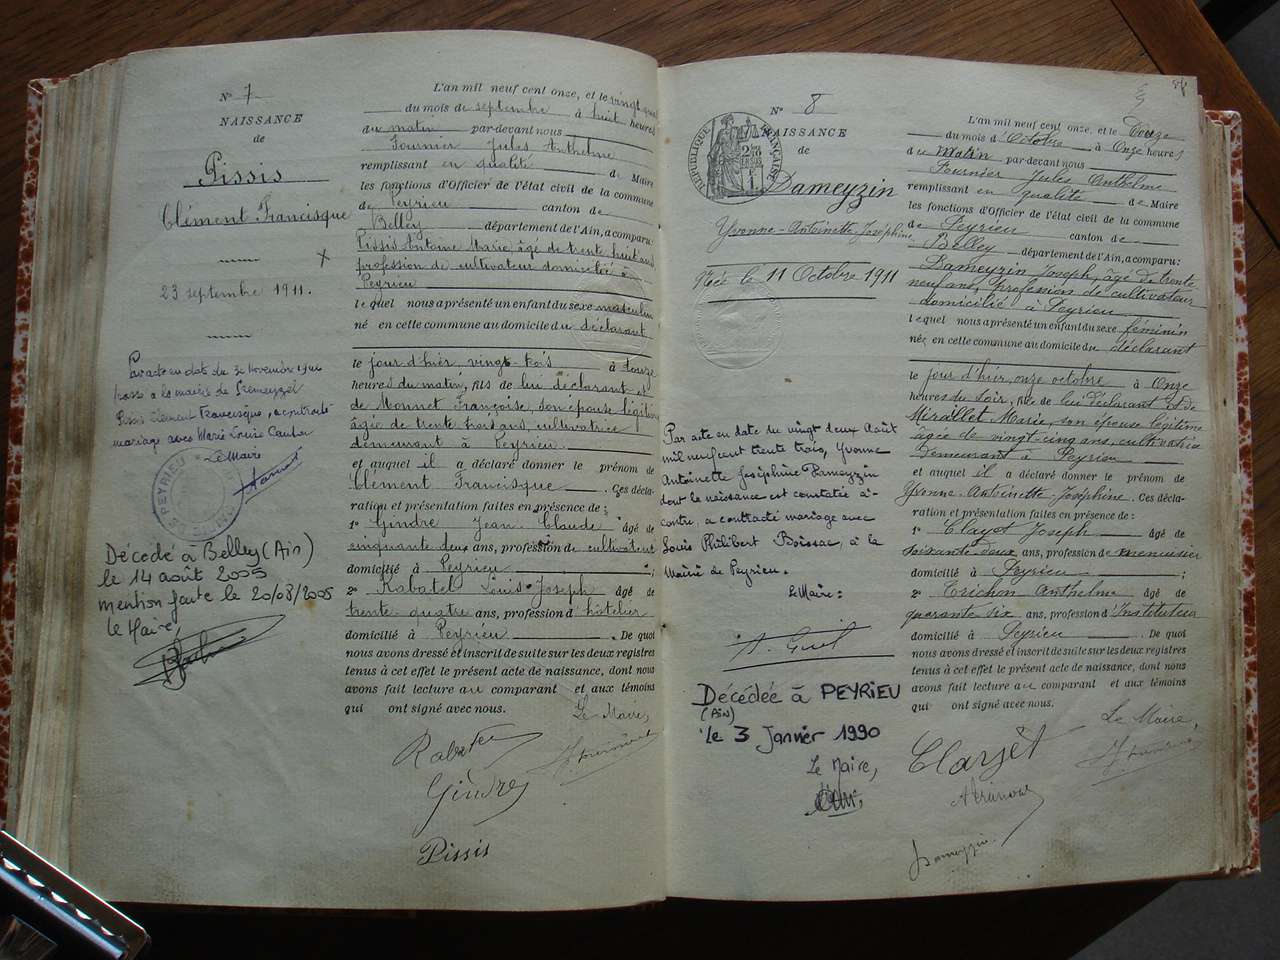 N° 7
NAISSANCE
de
Pissis
Clément Francisque
23 septembre 1911.
Par acte en date du 30 novembre
passé à la mairie de Premeyzel
Pissis Clément Francisque, a contracté
mariage avec Marie Louise
Le Maire
Décédé à Belley (Ain)
le 14 août 2005
mention faite le 20/08/2005
le Maire
L'an mil neuf cent onze, et le vingt quatre
du mois de septembre à huit heures
du matin par-devant nous
Fournier Jules Anthelme
remplissant en qualité de Maire
les fonctions d'Officier de l'état civil de la commune
de Peyrieu canton de
Belley département de l'Ain, a comparu:
Pissis Antoine Marie, âgé de trente huit ans
profession de cultivateur domicilié à
Peyrieu
lequel nous a présenté un enfant du sexe masculin
né en cette commune au domicile du déclarant
le jour d'hier, vingt-trois à onze
heures du matin, fils de lui déclarant et
de Monnet Françoise, son épouse légitime
âgée de trente trois ans, cultivatrice
demeurant à Peyrieu
et auquel il a déclaré donner le prénom de
Clément Francisque. Ces décla-
ration et présentation faites en présence de:
1° Gindre Jean Claude âgé de
cinquante deux ans, profession de cultivateur
domicilié à Peyrieu;
2° Rabatel Louis Joseph âgé de
trente quatre ans, profession d'hôtelier
domicilié à Peyrieu. De quoi
nous avons dressé et inscrit de suite sur les deux registres
tenus à cet effet le présent acte de naissance, dont nous
avons fait lecture au comparant et aux témoins
qui ont signé avec nous.
Le Maire,
Rabatel
Gindre
Pissis
N° 8
NAISSANCE
de
RÉPUBLIQUE FRANÇAISE
Dameyzin
Yvonne-Antoinette Joséphine
Née le 11 Octobre 1911
Par acte en date du vingt deux Août
mil neuf cent trente trois, Yvonne
Antoinette Joséphine Dameyzin
dont la naissance est constatée ci-
contre, a contracté mariage avec
Louis Philibert Boissac, à la
Mairie de Peyrieu.
Le Maire:
Décédée à PEYRIEU
(Ain)
le 3 Janvier 1990
Le Maire,
L'an mil neuf cent onze, et le Douze
du mois d'Octobre à Onze heures
du Matin par-devant nous
Fournier Jules Anthelme
remplissant en qualité de Maire
les fonctions d'Officier de l'état civil de la commune
de Peyrieu canton de
Belley département de l'Ain, a comparu:
Dameyzin Joseph, âgé de trente
neuf ans, profession de cultivateur
domicilié à Peyrieu
lequel nous a présenté un enfant du sexe féminin
née en cette commune au domicile du déclarant
le jour d'hier, onze octobre à Onze
heures du Soir, fille de lui déclarant et de
Miraillet Marie, son épouse légitime
âgée de vingt-cinq ans, cultivatrice
Demeurant à Peyrieu
et auquel il a déclaré donner le prénom de
Yvonne-Antoinette-Joséphine. Ces décla-
ration et présentation faites en présence de:
1° Clayet Joseph âgé de
soixante deux ans, profession de menuisier
domicilié à Peyrieu;
2° Trichon Anthelme âgé de
quarante six ans, profession d'Instituteur
domicilié à Peyrieu. De quoi
nous avons dressé et inscrit de suite sur les deux registres
tenus à cet effet le présent acte de naissance, dont nous
avons fait lecture au comparant et aux témoins
qui ont signé avec nous.
Le Maire,
Clayet
Dameyzin